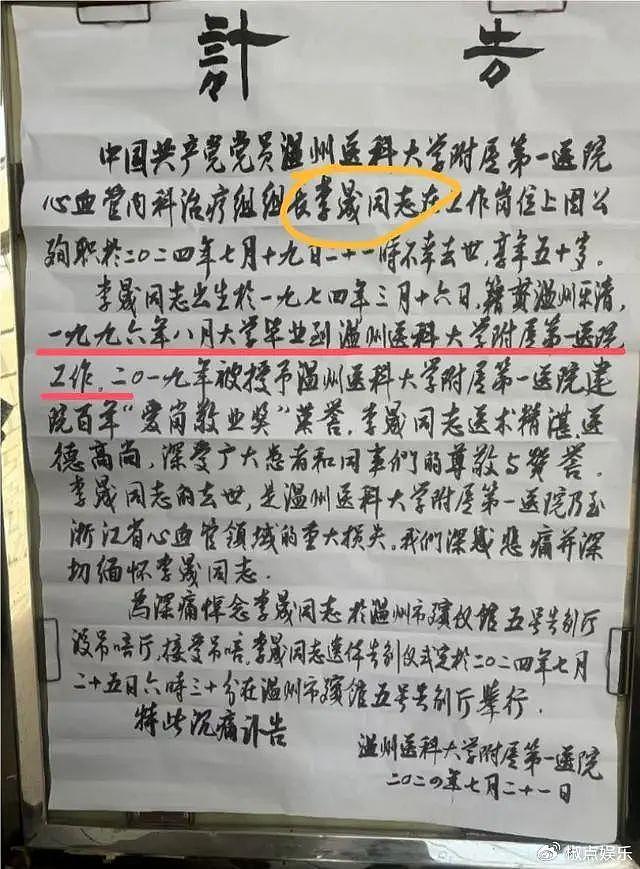 訃 告
中国共产党党员温州医科大学附属第一医院
心血管内科治疗组组长李晟同志在工作岗位上因公
殉职於二〇二四年七月十九日二十一時不幸去世,享年五十岁。
李晟同志出生於一九七四年三月十六日,籍贯温州乐清,
一九九六年八月大学毕业到温州医科大学附属第一医院
工作。二〇一九年被授予温州医科大学附属第一医院建
院百年“爱岗敬业奖”荣誉。李晟同志医术精湛,医
德高尚,深受广大患者和同事们的尊敬与赞誉。
李晟同志的去世,是温州医科大学附属第一医院乃至
浙江省心血管领域的重大损失。我们深感悲痛并深
切缅怀李晟同志。
為深痛悼念李晟同志於温州市殡仪馆五号告别厅
设吊唁厅,接受吊唁,李晟同志遗体告别仪式定於二〇二四年七月
二十五日六時三十分在温州市殡馆五号告别厅举行。
特此沉痛讣告
温州医科大学附属第一医院
二〇二四年七月二十一日
椒点娱乐